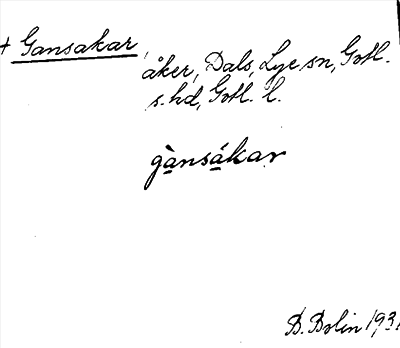 + Gansakar,
åker, Dals, Lye sn, Gotl.
s. hd, Gotl. l.
gànsákar
B. Bolin 1931